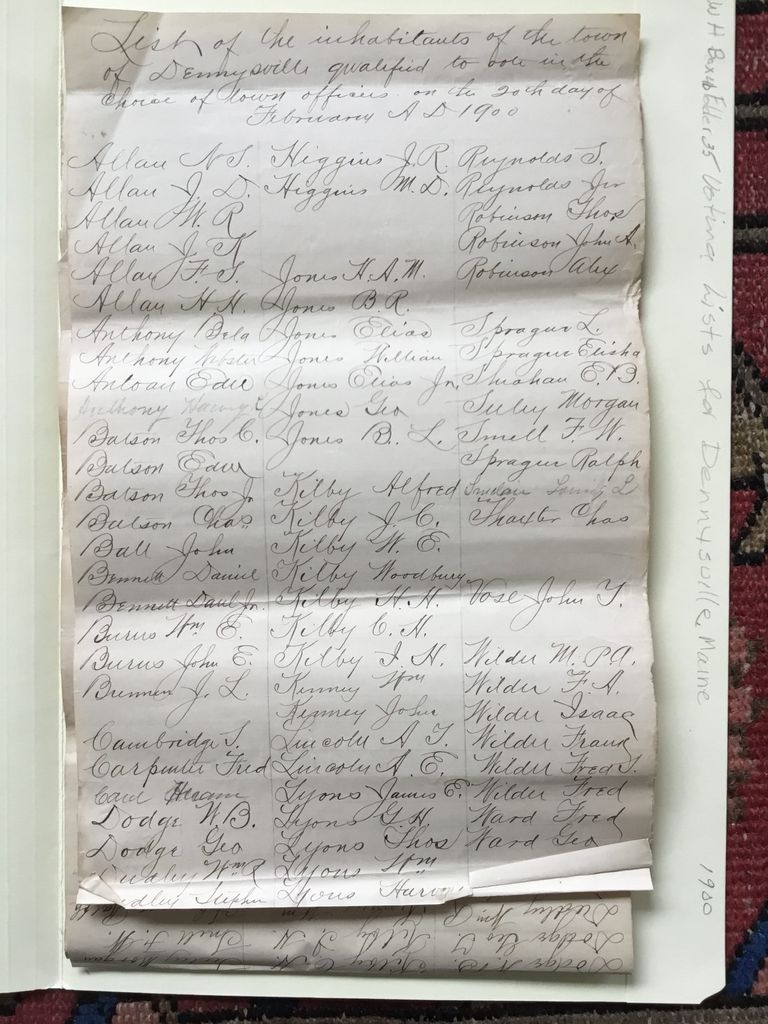 List of the inhabitants of the town
of Dennysville qualified to vote in the
choice of town officers on the 20th day of
February A D 1900
Allan N S. Higgins J. R. Reynolds S.
Allan J. D. Higgins M. D. Reynolds Jr
Allan W. R Robinson Thos
Allan J. K Robinson John A.
Allan F. S. Jones H. A. M. Robinson Alex
Allan H. H. Jones B. R.
Anthony Bela Jones Elias Sprague L.
Anthony Webster Jones William Sprague Elisha
Antoan Edw Jones Elias Jr. Shahan E. B.
Anthony Jones Geo Morgan
Batson Thos C. Jones B. L. Smell F. W.
Batson Edw Sprague Ralph
Batson Thos Jr Kilby Alfred
Batson Chas Kilby J. C. Thaxter Chas
Ball John Kilby W. E.
Bennett Daniel Kilby Woodbury
Bennett Danl Jr. Kilby H. H. Vose John T.
Burns Wm E. Kilby C. H.
Burns John E. Kilby I. H. Wilder M. P. A.
Brennen J. L. Kinney Wm Wilder F. A.
Kinney John Wilder Isaac
Cambridge S. Lincoln A. T. Wilder Frank
Carpenter Fred Lincoln A. E. Wilder Fred S.
Card Hiram Lyons James E. Wilder Fred
Dodge W. B. Lyons G H Ward Fred
Dodge Geo Lyons Thos Ward Geo
Dudley Wm R Lyons Wm
Dudley Stephen Lyons Harvey
W H Box 16 Folder 35 Voting Lists for Dennysville, Maine 1900